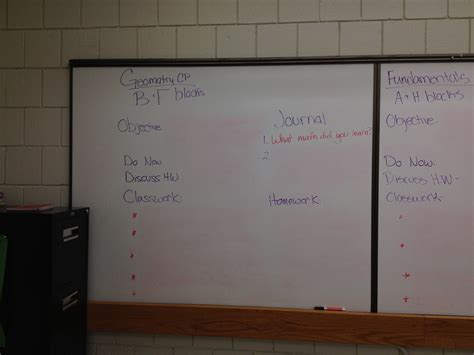 Geomatry CP
B + F blocks
Objective
Do Now
Discuss HW
Classwork
Journal
1. What math did you learn?
2
Homework
Fundamentals
A + H blocks
Objective:
Do Now:
Discuss HW-
Classwork